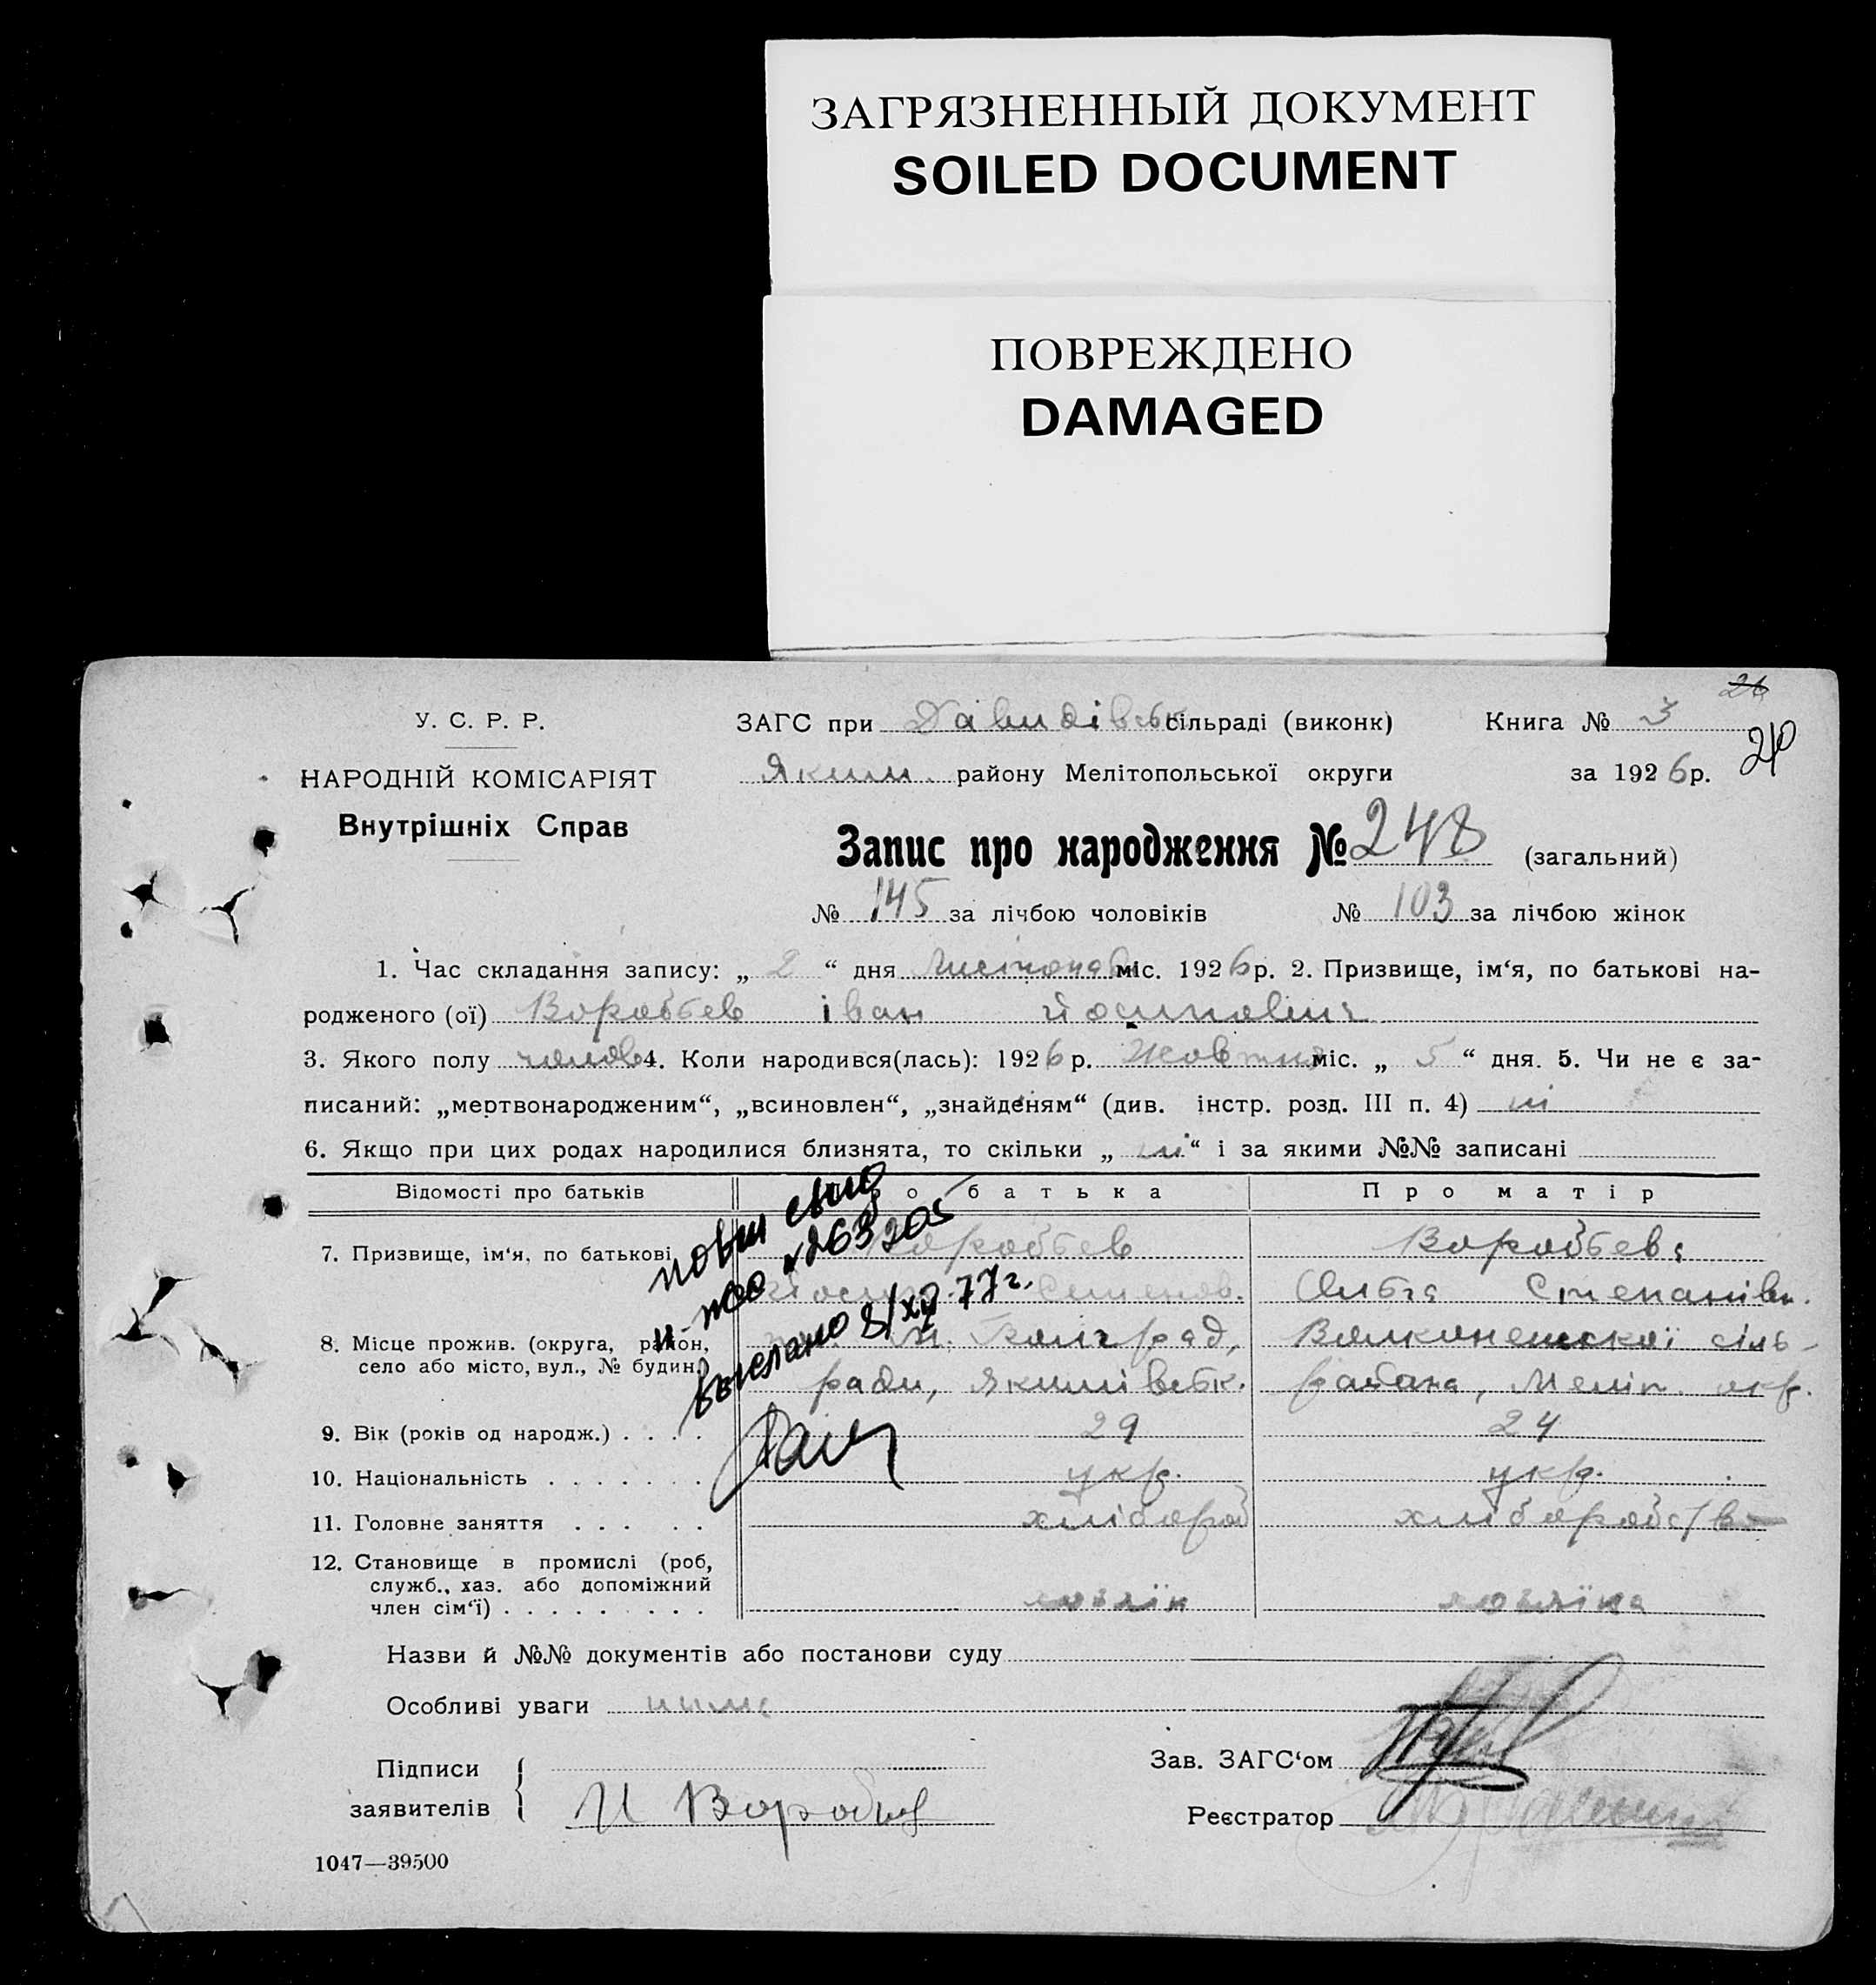 ЗАГРЯЗНЕННЫЙ ДОКУМЕНТ
SOILED DOCUMENT
ПОВРЕЖДЕНО
DAMAGED
26
У. С. Р. Р.
ЗАГС при Давидівськ сільраді (виконк)
Книга № 3
НАРОДНІЙ КОМІСАРІЯТ
Внутрішніх Справ
Яким. району Мелітопольської округи
за 1926 р.
Запис про народження № 248 (загальний)
№ 145 за лічбою чоловіків № 103 за лічбою жінок
1. Час складання запису: „ 2 “ дня Листопада міс. 1926 р. 2. Призвище, ім‘я, по батькові на-
родженого (ої) Воробьев іван йосипович
3. Якого полу чолов 4. Коли народився(лась): 1926 р. Жовтня міс. „ 5 “ дня. 5. Чи не є за-
писаний: „мертвонародженим“, „всиновлен“, „знайденям“ (див. інстр. розд. III п. 4) ні
6. Якщо при цих родах народилися близнята, то скільки „ ні “ і за якими №№ записані
Відомості про батьків Про батька Про матір
7. Призвище, ім‘я, по батькові Воробьев Воробьева
Йосип Семенов. Ольга Степанівн.
8. Місце прожив. (округа, район,
село або місто, вул., № будин.)
ради, Якимівськ. району, Меліт. окр.
9. Вік (років од народж.) . . . . 29 24
10. Національність . . . . . . . укр. укр.
11. Головне заняття . . . . . хлібороб хліборобство
12. Становище в промислі (роб,
служб., хаз. або допоміжний
член сім‘ї) . . . . . . . . хозяїн хозяїна
Назви й №№ документів або постанови суду
Особливі уваги нима
Підписи
заявителів
И Воробьев
Зав. ЗАГС‘ом
Реєстратор
1047—39500
повт свид
выслано 8/XII 77 г.